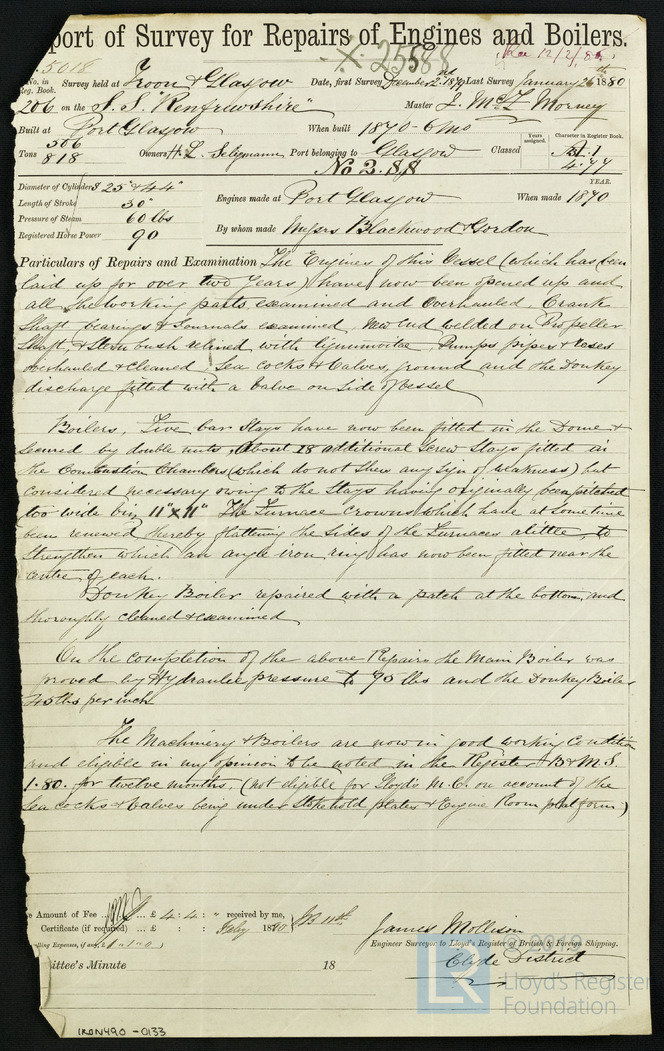 port of Survey for Repairs of Engines and Boilers.
X. 25588
Rec 12/2/80
5018
No. in Reg. Book. Survey held at Troon & Glasgow Date, first Survey December 2nd 1879 Last Survey January 26th 1880
206 on the S.S. "Renfrewshire" Master J. McL
Built at Port Glasgow When built 1870-6mo
Tons 506 818 Owners H. L. Seligmann Port belonging to Glasgow Classed Years assigned. Character in Register Book. A.1 4.77
No 2.88
Diameter of Cylinders 25 & 44" YEAR.
Length of Stroke 30" Engines made at Port Glasgow When made 1870
Pressure of Steam 60 lbs
Registered Horse Power 90 By whom made Messrs Blackwood & Gordon
Particulars of Repairs and Examination The Engines of this Vessel (which has been
laid up for over two years) have now been opened up and
all the working parts examined and overhauled, Crank
Shaft bearings & Journals examined, New end welded on Propeller
Shaft, & Stern bush relined with lignumvitae, Pumps pipes & roses
overhauled & cleaned, Sea cocks & Valves, ground and the Donkey
discharge fitted with a Valve on side of vessel
Boilers, Five bar Stays have now been fitted in the Dome &
secured by double nuts, About 18 additional Screw Stays fitted in
the Combustion Chambers (which do not shew any sign of weakness) but
considered necessary owing to the Stays having originally been pitched
too wide being 11"x11" The Furnace Crowns which have at sometime
been renewed thereby flattening the sides of the Furnaces a little, to
Strengthen which an angle iron ring has now been fitted near the
centre of each.
Donkey Boiler repaired with a patch at the bottom, and
thoroughly cleaned & examined
On the completion of the above Repairs the Main Boiler was
proved by Hydraulic pressure to 95 lbs and the Donkey Boiler
45 lbs per inch
The Machinery & Boilers are now in good working Condition
and eligible in my opinion to be noted in the Register + B & M.S.
1.80. for twelve months, (not eligible for Lloyd's M.C. on account of the
Sea cocks & Valves being under Stokehold plates & Engine Room platform)
e Amount of Fee ... £ 4 : 4 : " received by me,
Certificate (if required) ... £ : : Feby 1880
lling Expenses, if any, £
James Mollison
Engineer Surveyor to Lloyd's Register of British & Foreign Shipping.
Clyde District
ittee's Minute 18
© 2019
LR
Lloyd's Register
Foundation
IRON490-0133